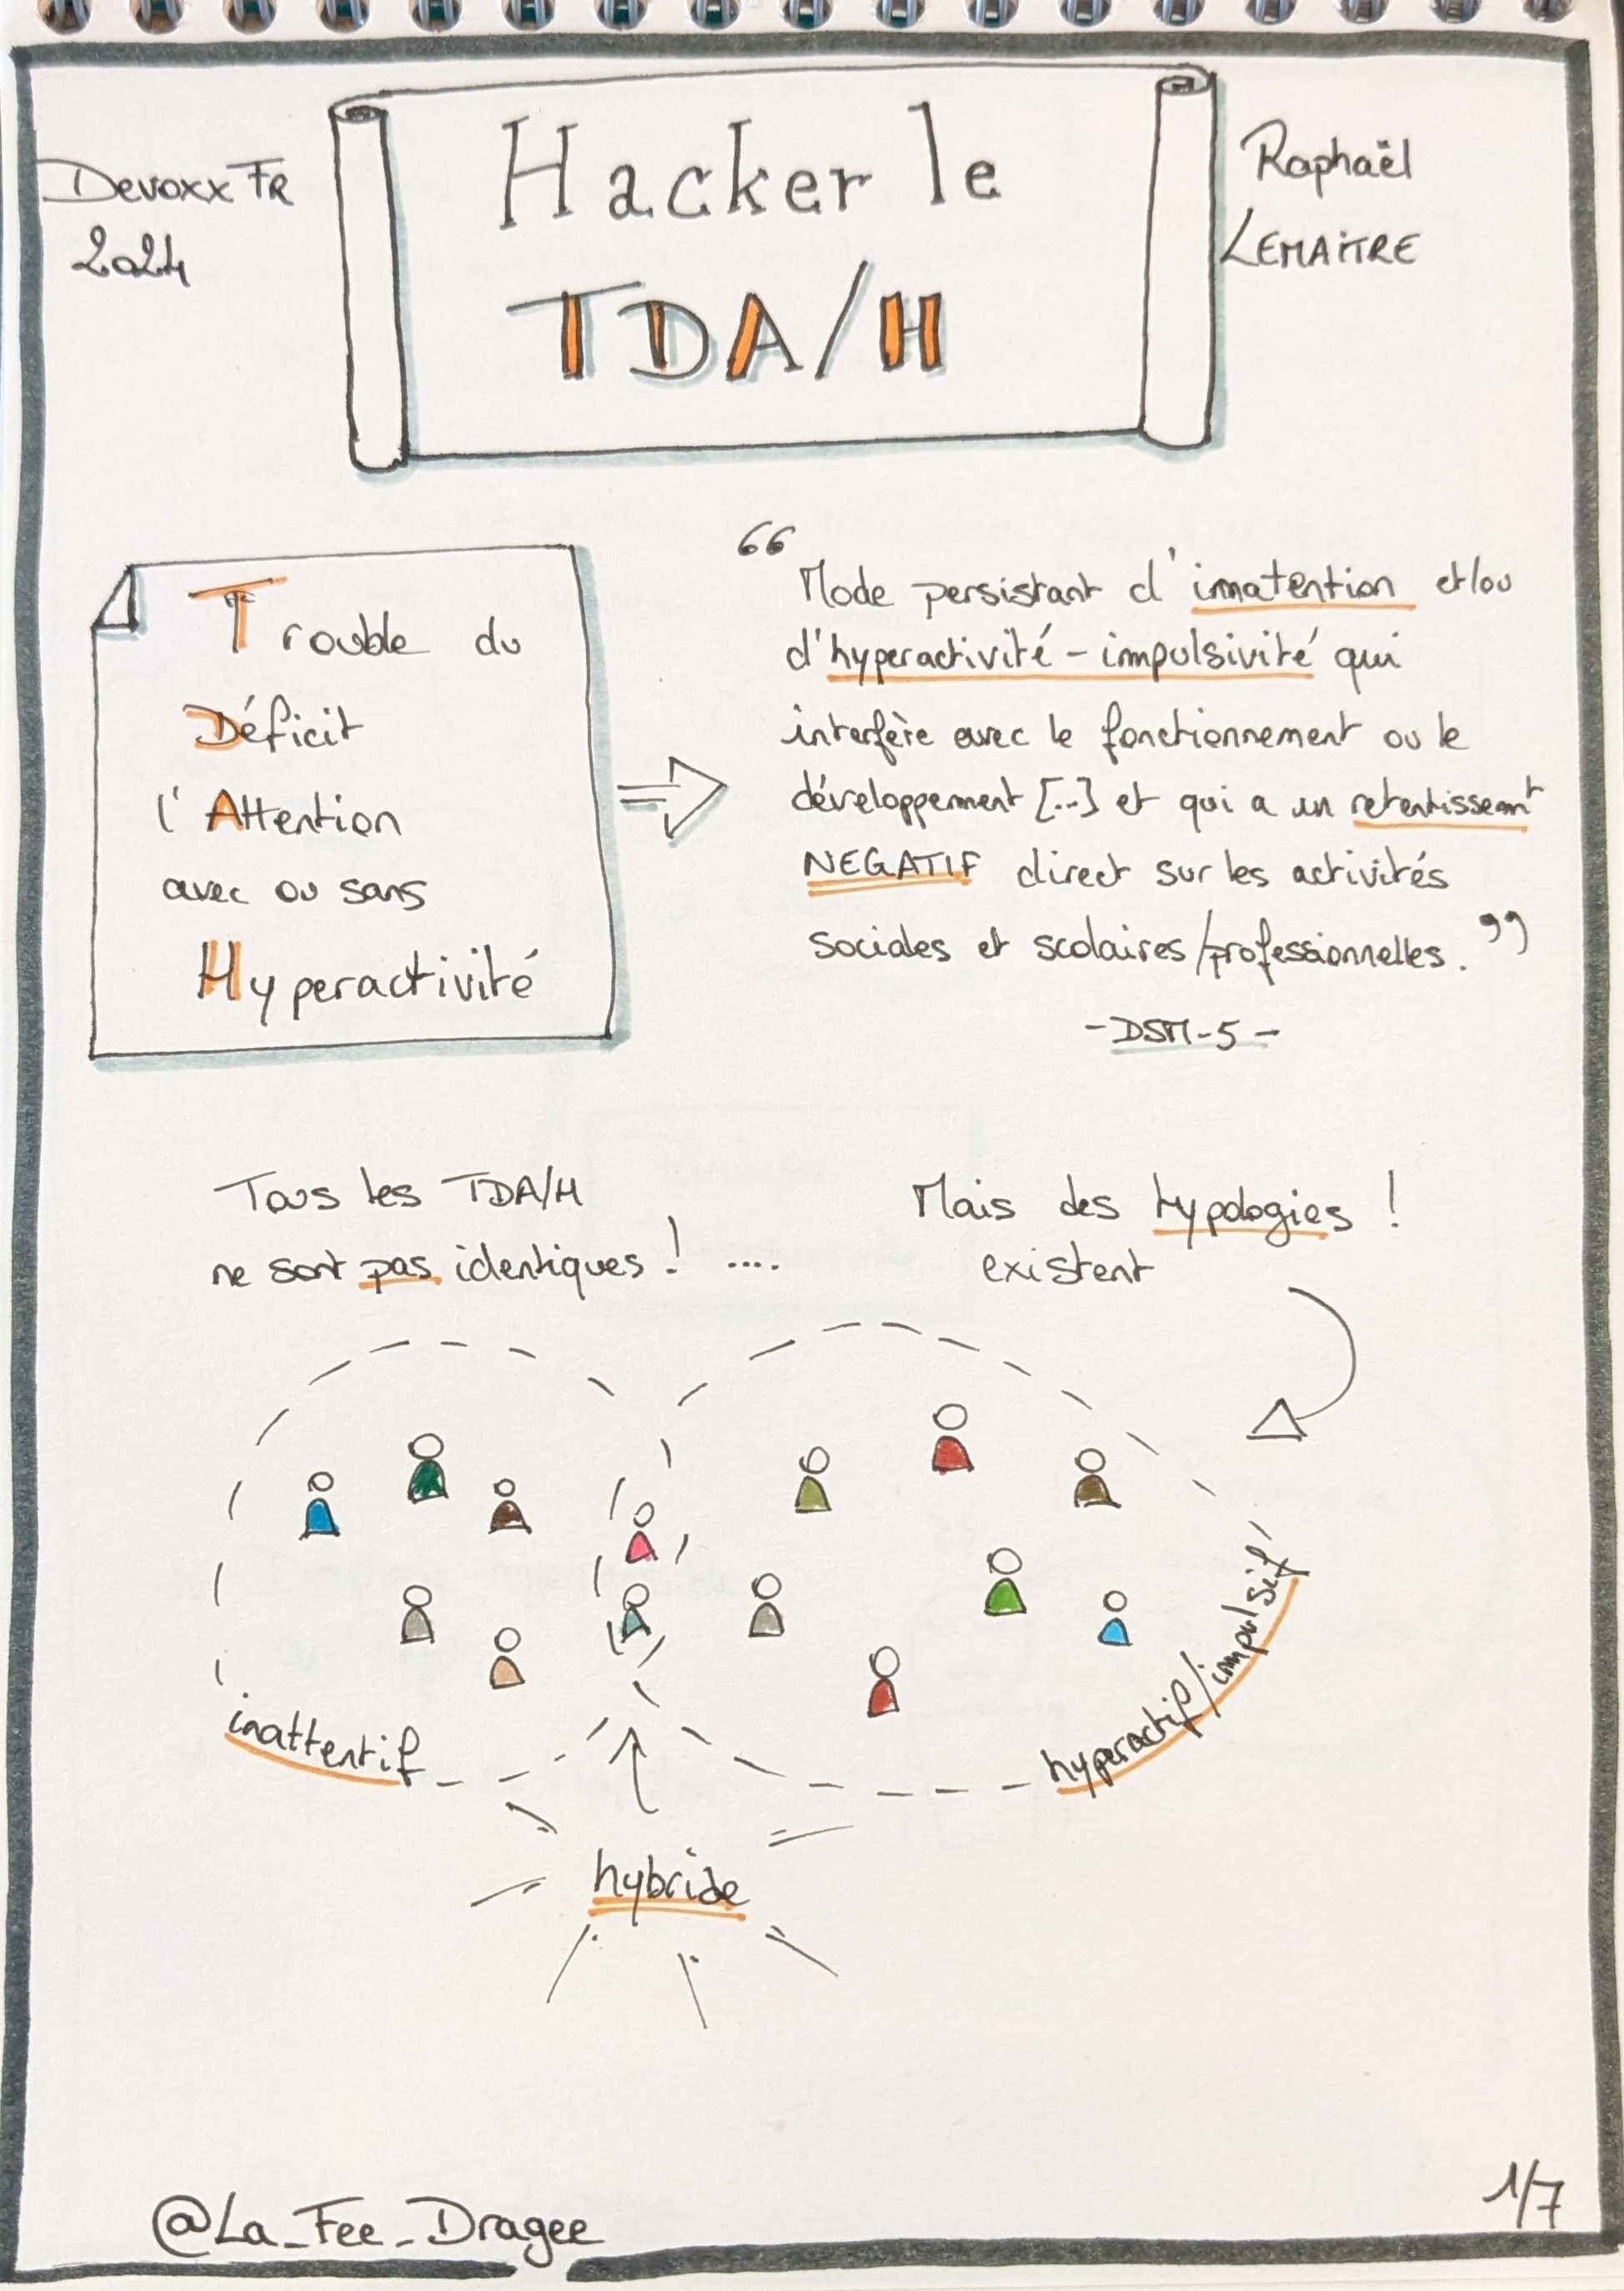 Devoxx FR
2024
Hacker le
TDA/H
Raphaël
LEMAITRE
Trouble du
Déficit
l'Attention
avec ou sans
Hyperactivité
“ Mode persistant d'innatention et/ou
d'hyperactivité - impulsivité qui
interfère avec le fonctionnement ou le
développement [...] et qui a un retentissement
NEGATIF direct sur les activités
sociales et scolaires/professionnelles. ”
- DSM-5 -
Tous les TDA/H
ne sont pas identiques ! ....
Mais des typologies !
existent
inattentif
hyperactif/impulsif
hybride
@La_Fee_Dragee
1/7